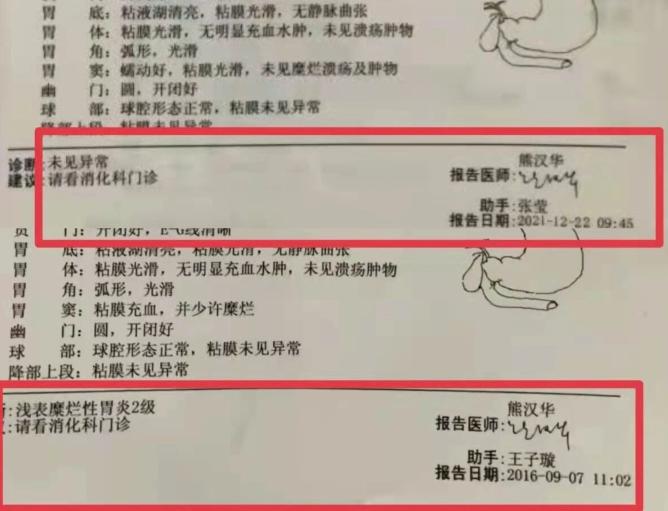 胃 底：粘液湖清亮，粘膜光滑，无静脉曲张
胃 体：粘膜光滑，无明显充血水肿，未见溃疡肿物
胃 角：弧形，光滑
胃 窦：蠕动好，粘膜光滑，未见糜烂溃疡及肿物
幽 门：圆，开闭好
球 部：球腔形态正常，粘膜未见异常
降部上段：粘膜未见异常
诊断：未见异常
建议：请看消化科门诊
熊汉华
报告医师：
助手：张莹
报告日期：2021-12-22 09:45
贲 门：开闭好，E-G线清晰
胃 底：粘液湖清亮，粘膜光滑，无静脉曲张
胃 体：粘膜光滑，无明显充血水肿，未见溃疡肿物
胃 角：弧形，光滑
胃 窦：粘膜充血，并少许糜烂
幽 门：圆，开闭好
球 部：球腔形态正常，粘膜未见异常
降部上段：粘膜未见异常
：浅表糜烂性胃炎2级
：请看消化科门诊
熊汉华
报告医师：
助手：王子璇
报告日期：2016-09-07 11:02